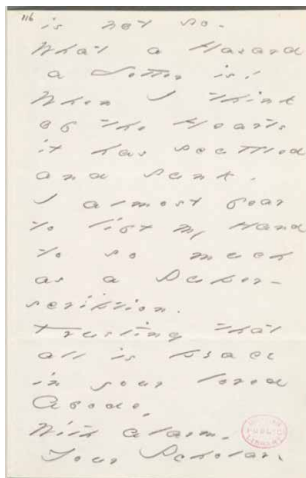 116
is not so.
What a Hazard
a Letter is!
When I think
of the Hearts
it has scuttled
and sunk.
I almost fear
to lift my Hand
to so much
as a Super-
scription.
Trusting that
all is peace
in your loved
Abode,
With alarm,
Your Scholar.
PUBLIC
LIBRARY